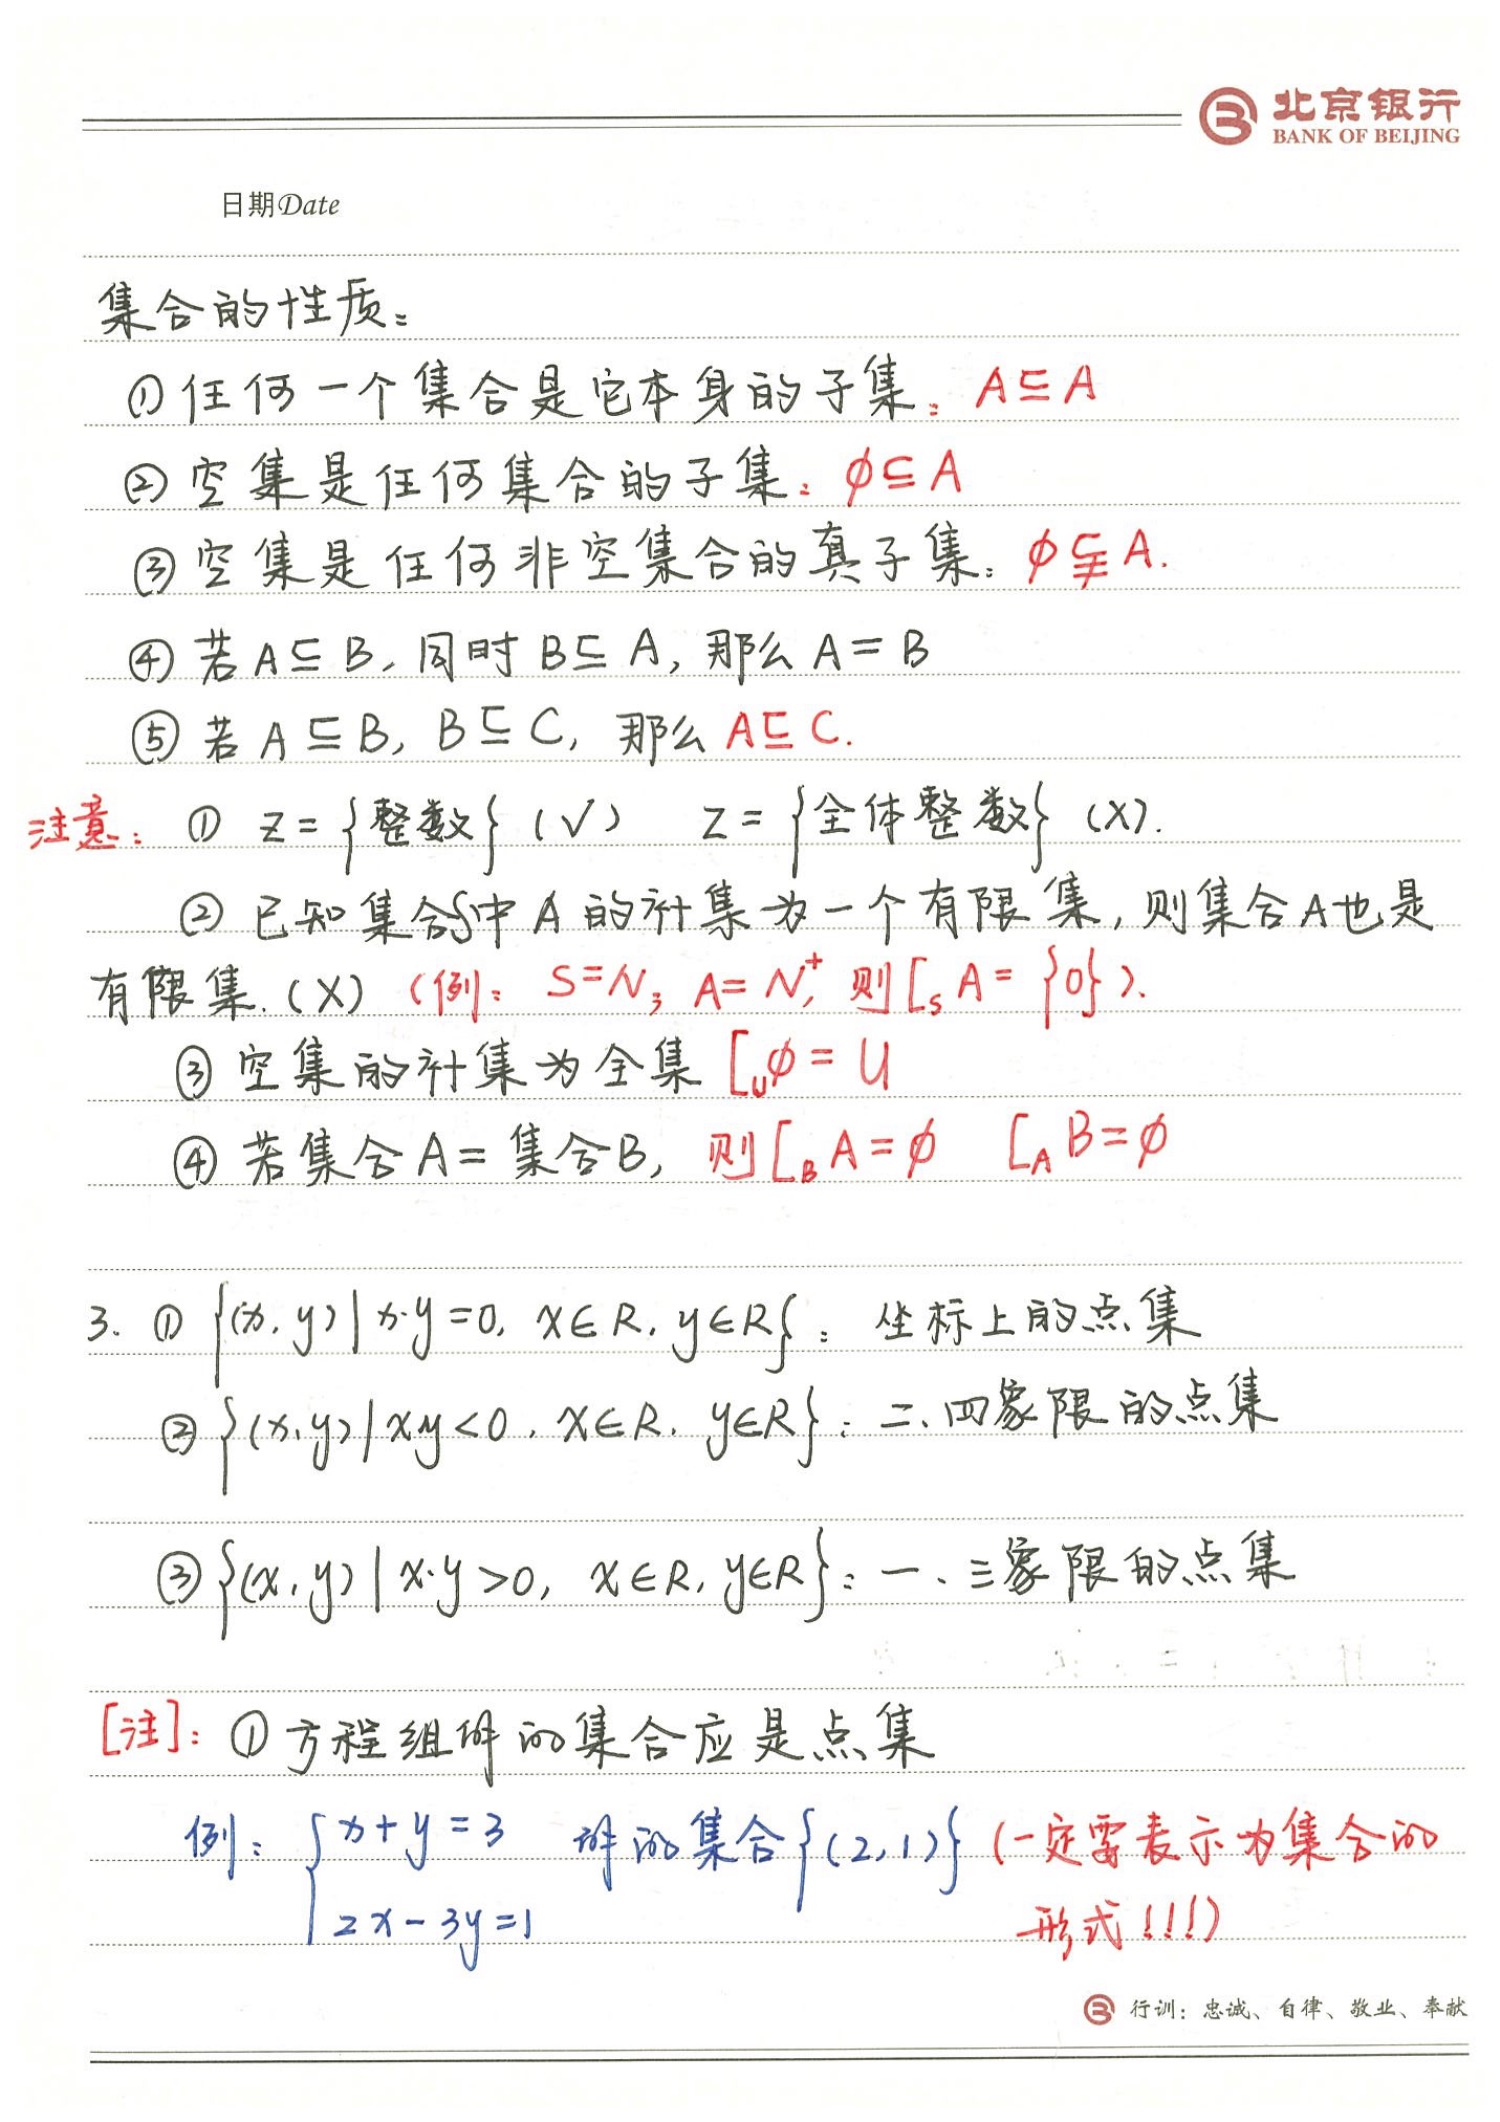 北京银行
BANK OF BEIJING
日期Date
集合的性质:
①任何一个集合是它本身的子集: A⊆A
②空集是任何集合的子集: ϕ⊆A
③空集是任何非空集合的真子集: ϕ⫋A.
④若A⊆B,同时B⊆A,那么A=B
⑤若A⊆B,B⊆C,那么A⊆C.
注意: ① Z={整数}(√) Z={全体整数}(X).
②已知集合S中A的补集为一个有限集,则集合A也是
有限集.(X)(例: S=N; A=N⁺, 则∁ₛA={0}).
③空集的补集为全集 ∁ᵤϕ=U
④若集合A=集合B, 则∁_B A=ϕ ∁_A B=ϕ
3. ① {(x,y)|x·y=0, x∈R, y∈R}: 坐标上的点集
②{(x,y)|xy<0, x∈R, y∈R}: 二、四象限的点集
③{(x,y)|x·y>0, x∈R, y∈R}: 一、三象限的点集
[注]: ①方程组解的集合应是点集
例: {x+y=3 解的集合{(2,1)}(一定要表示为集合的
2x-3y=1 形式!!!)
行训:忠诚、自律、敬业、奉献